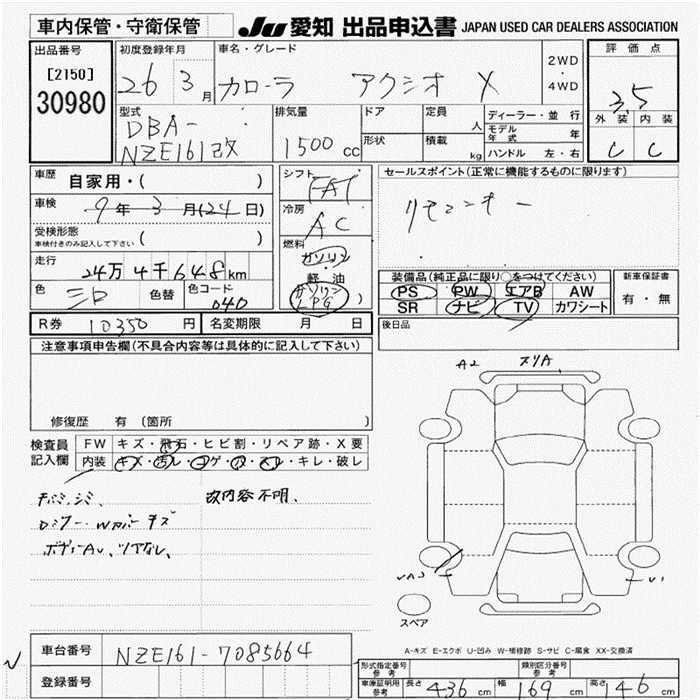 車内保管・守衛保管 JU 愛知 出品申込書 JAPAN USED CAR DEALERS ASSOCIATION
出品番号
[2150]
30980
初度登録年月
26 3月
車名・グレード
カローラ アクシオ X
2WD
・
4WD
評価点
3.5
外装 内装
C C
型式
DBA-
NZE161改
排気量
1500 cc
ドア
形状
定員
人
積載
kg
ディーラー・並行
モデル年式 年
ハンドル 左・右
車歴
自家用・( )
車検
9年 3月(24日)
受検形態
車検付きのみ記入して下さい ( )
走行
24万4千648km
色
シロ
色替
色コード
040
R券 10350 円 名変期限 月 日
シフト
FAT
冷房
AC
燃料
ガソリン
軽油
ガソリン
LPG )
セールスポイント(正常に機能するものに限ります)
リモコンキー
装備品(純正品に限り○をつけてください)
PS PW エアB AW
SR ナビ TV カワシート
新車保証書
有・無
後日品
注意事項申告欄(不具合内容等は具体的に記入して下さい)
修復歴 有 (箇所 )
検査員
記入欄
FW キズ・飛石・ヒビ割・リペア跡・X要
内装 キズ・汚レ・コゲ・穴・スレ・キレ・破レ
改内容不明、
A2
スリA
U1
スペア
A-キズ E-エクボ U-凹み W-補修跡 S-サビ C-腐食 XX-交換済
車台番号 NZE161-7085664
登録番号
形式指定番号
参考
類別区分番号
参考
車庫証明用
参考
長さ 436 cm 幅 169 cm 高さ 146 cm